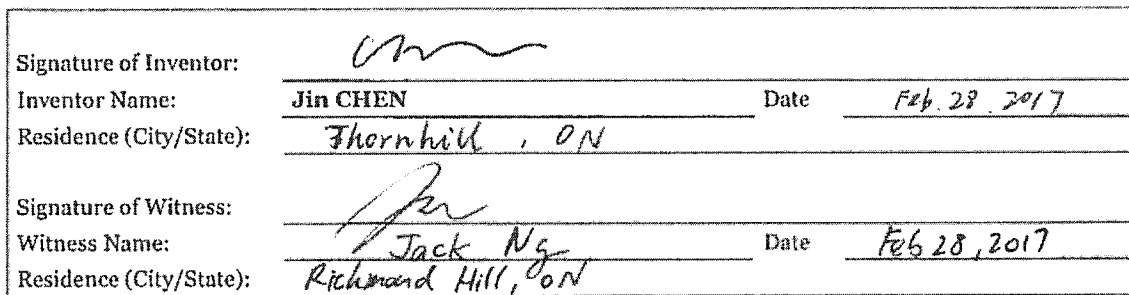 Signature of Inventor:
Inventor Name: Jin CHEN Date Feb. 28. 2017
Residence (City/State): Thornhill, ON
Signature of Witness:
Witness Name: Jack Ng Date Feb 28, 2017
Residence (City/State): Richmond Hill, ON